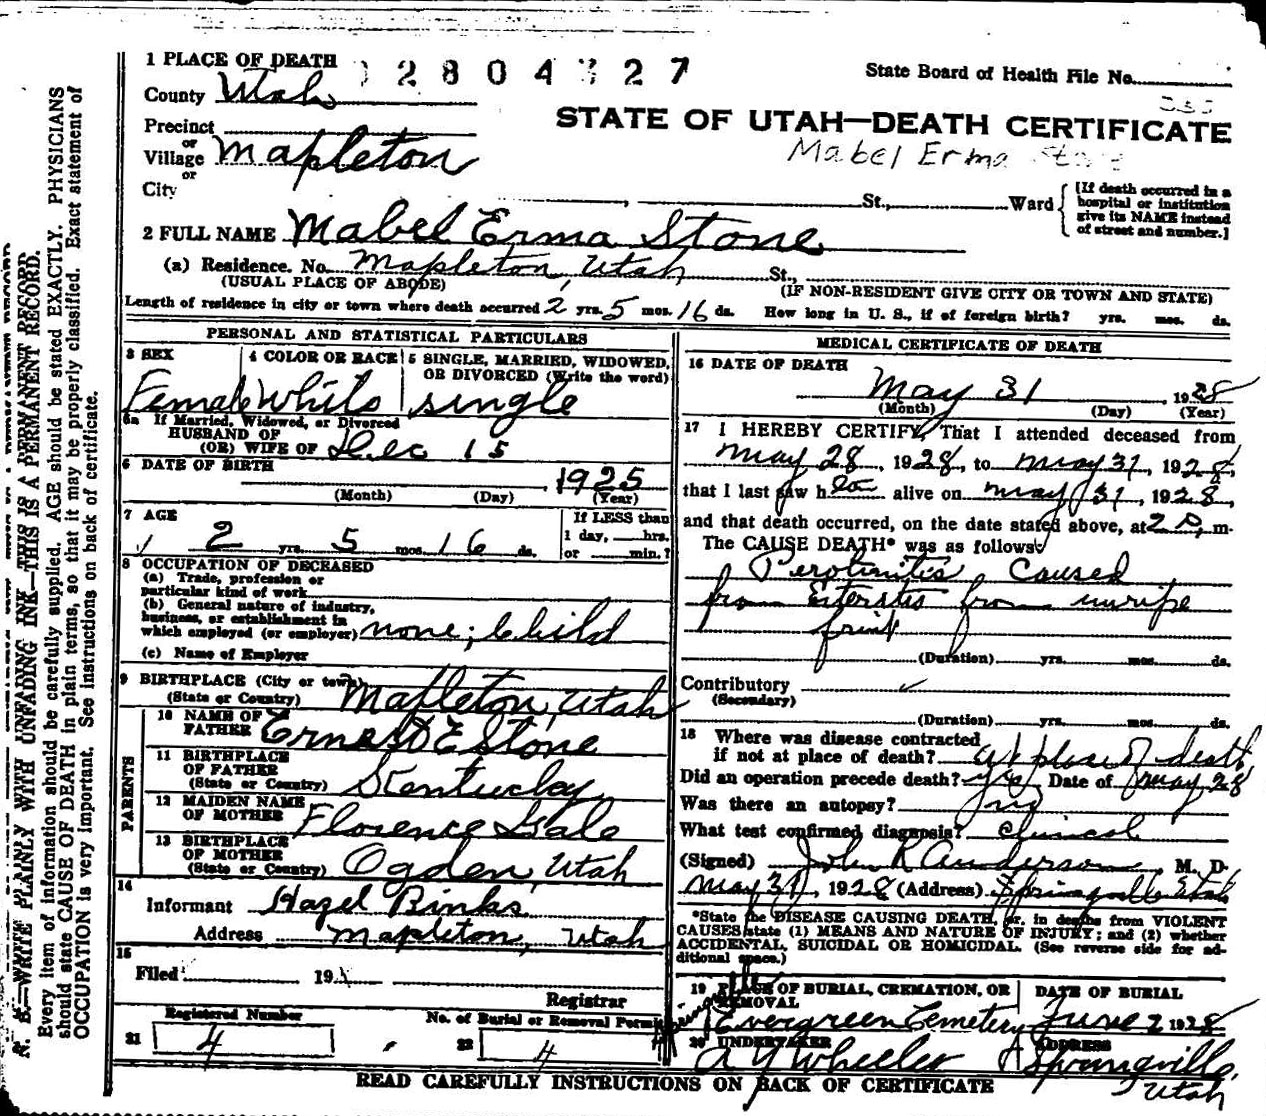 1 PLACE OF DEATH
2804327
State Board of Health File No.
County Utah
STATE OF UTAH—DEATH CERTIFICATE
Mabel Erma Stone
Precinct
or
Village Mapleton
or
City
St., Ward
[If death occurred in a
hospital or institution
give its NAME instead
of street and number.]
2 FULL NAME Mabel Erma Stone
(a) Residence. No. Mapleton, Utah St.,
(USUAL PLACE OF ABODE) (IF NON-RESIDENT GIVE CITY OR TOWN AND STATE)
Length of residence in city or town where death occurred 2 yrs. 5 mos. 16 ds. How long in U. S., if of foreign birth? yrs. mos. ds.
PERSONAL AND STATISTICAL PARTICULARS
3 SEX
Female
4 COLOR OR RACE
White
5 SINGLE, MARRIED, WIDOWED,
OR DIVORCED (Write the word)
single
5a If Married, Widowed, or Divorced
HUSBAND OF
(OR) WIFE OF Dec 15
6 DATE OF BIRTH
1925
(Month) (Day) (Year)
7 AGE
2 yrs. 5 mos. 16 ds.
If LESS than
1 day, hrs.
or min.?
8 OCCUPATION OF DECEASED
(a) Trade, profession or
particular kind of work
(b) General nature of industry,
business, or establishment in
which employed (or employer) none; Child
(c) Name of Employer
9 BIRTHPLACE (City or town)
(State or Country) Mapleton, Utah
PARENTS
10 NAME OF
FATHER Ernest E Stone
11 BIRTHPLACE
OF FATHER
(State or Country) Kentucky
12 MAIDEN NAME
OF MOTHER Florence Gale
13 BIRTHPLACE
OF MOTHER
(State or Country) Ogden, Utah
14
Informant Hazel Binks
Address Mapleton, Utah
15
Filed 19
Registrar
Registered Number
21 4
No. of Burial or Removal Permit
22 4
MEDICAL CERTIFICATE OF DEATH
16 DATE OF DEATH
May 31 1928
(Month) (Day) (Year)
17 I HEREBY CERTIFY, That I attended deceased from
May 28, 1928, to May 31, 1928,
that I last saw her alive on May 31, 1928,
and that death occurred, on the date stated above, at 2 P. m.
The CAUSE DEATH* was as follows:
Perotinitis Caused
from Enteritis from unripe
fruit
(Duration) yrs. mos. ds.
Contributory
(Secondary)
(Duration) yrs. mos. ds.
18 Where was disease contracted
if not at place of death? at place of death
Did an operation precede death? yes Date of May 28
Was there an autopsy? no
What test confirmed diagnosis? Clinical
(Signed) John R Anderson, M. D.
May 31, 1928 (Address) Springville Utah
*State the DISEASE CAUSING DEATH, or, in deaths from VIOLENT
CAUSES state (1) MEANS AND NATURE OF INJURY; and (2) whether
ACCIDENTAL, SUICIDAL OR HOMICIDAL. (See reverse side for ad-
ditional space.)
19 PLACE OF BURIAL, CREMATION, OR
REMOVAL
Evergreen Cemetery
DATE OF BURIAL
June 2 1928
20 UNDERTAKER
A Y Wheeler
ADDRESS
Springville,
Utah
READ CAREFULLY INSTRUCTIONS ON BACK OF CERTIFICATE
N. B.—WRITE PLAINLY WITH UNFADING INK—THIS IS A PERMANENT RECORD.
Every item of information should be carefully supplied. AGE should be stated EXACTLY. PHYSICIANS
should state CAUSE OF DEATH in plain terms, so that it may be properly classified. Exact statement of
OCCUPATION is very important. See instructions on back of certificate.